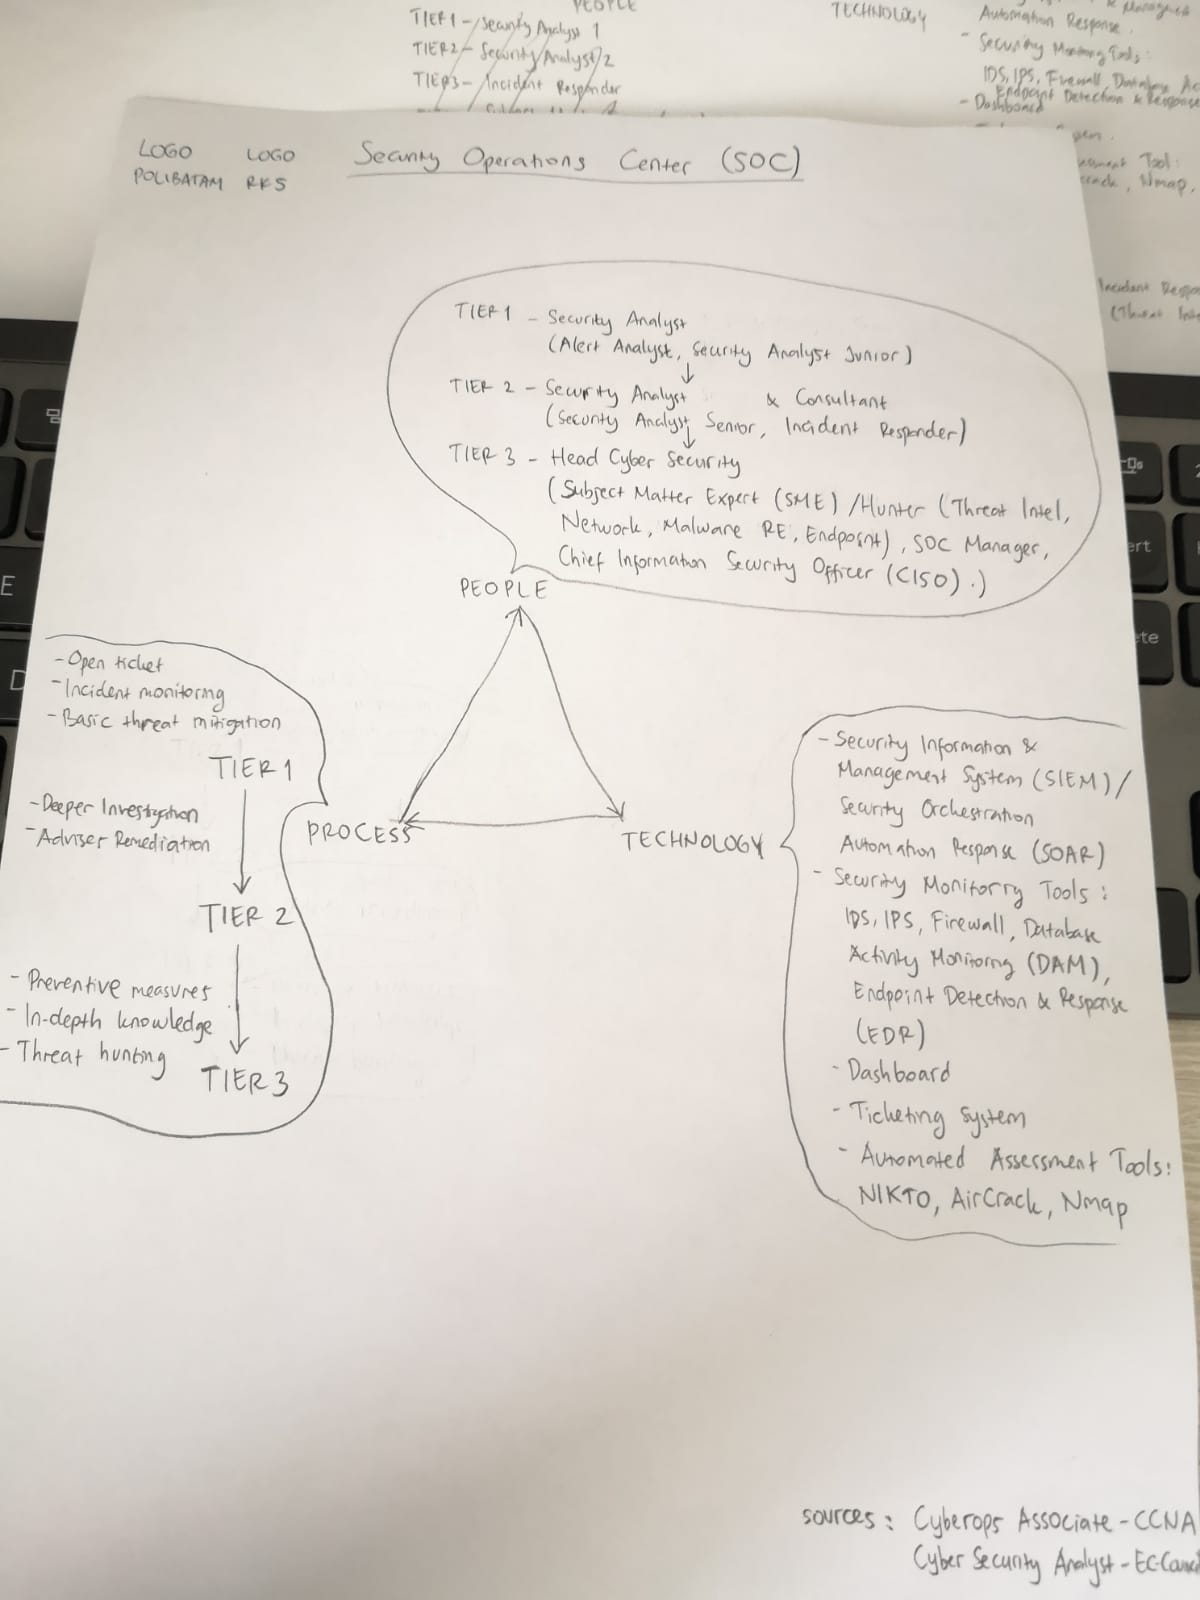 PEOPLE
TIER 1 - Security Analyst 1
TIER 2 - Security Analyst 2
TIER 3 - Incident Responder
TECHNOLOGY
Automation Response.
- Security Monitoring Tools:
IDS, IPS, Firewall, Database
Endpoint Detection & Response
- Dashboard
Tool:
Nmap,
Incident
(Threat
LOGO LOGO
POLIBATAM RKS
Security Operations Center (SOC)
TIER 1 - Security Analyst
(Alert Analyst, Security Analyst Junior)
TIER 2 - Security Analyst & Consultant
(Security Analyst Senior, Incident Responder)
TIER 3 - Head Cyber Security
(Subject Matter Expert (SME) / Hunter (Threat Intel,
Network, Malware RE, Endpoint), SOC Manager,
Chief Information Security Officer (CISO).)
PEOPLE
- Open ticket
- Incident monitoring
- Basic threat mitigation
TIER 1
- Deeper Investigation
- Adviser Remediation
TIER 2
- Preventive measures
- In-depth knowledge
- Threat hunting
TIER 3
PROCESS
TECHNOLOGY
- Security Information &
Management System (SIEM) /
Security Orchestration
Automation Response (SOAR)
- Security Monitorry Tools:
IDS, IPS, Firewall, Database
Activity Monitoring (DAM),
Endpoint Detection & Response
(EDR)
- Dashboard
- Ticketing System
- Automated Assessment Tools:
NIKTO, AirCrack, Nmap
sources: Cyberops Associate - CCNA
Cyber Security Analyst - EC-Council
E
D